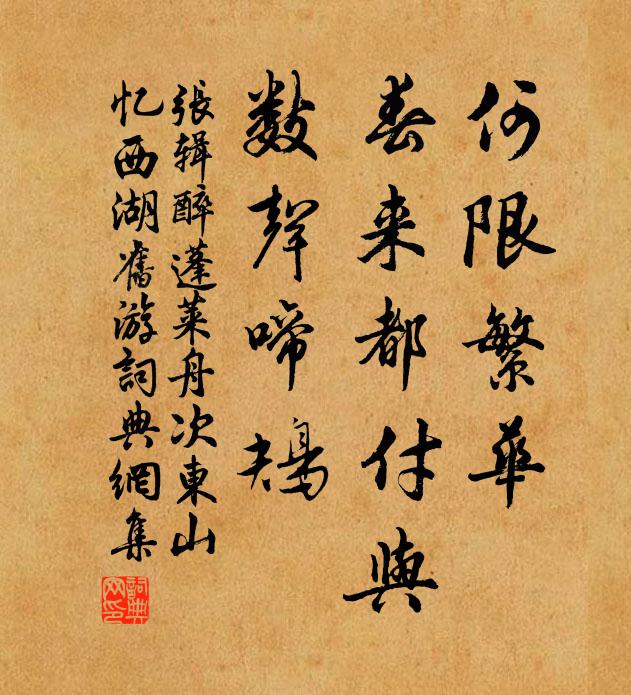 何限繁華
春来都付與
數聲啼鴂
張輯醉蓬萊舟次東山
忆西湖舊游詞典網集
詞典
网印